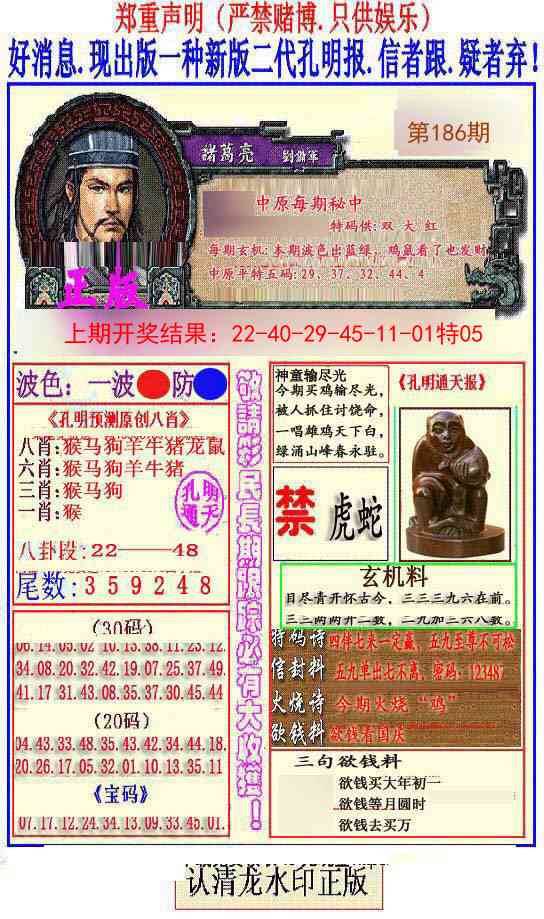 郑重声明（严禁赌博.只供娱乐）
好消息.现出版一种新版二代孔明报.信者跟.疑者弃!
第186期
諸葛亮
中原每期秘中
特码供:双大红
每期玄机:本期波色出蓝绿，鸡鼠看了也发财
中原平特五码:29、37、32、44、4
正版
上期开奖结果：22-40-29-45-11-01特05
波色：一波 防
《孔明预测原创八肖》
八肖:猴马狗羊牛猪龙鼠
六肖:猴马狗羊牛猪
三肖:猴马狗
一肖:猴
孔明
通天
八卦段:22——48
尾数:359248
(30码)
06.14.03.02 10.13.38.11.23.12
34.08.20.32.42.19.07.25.37.49.
41.17.31.43.08.35.37.30.45.44
(20码)
04.43.33.48.35.43.42.34.44.18.
20.26.17.05.32.01.10.13.35.11
《宝码》
07.17.12.24.34.13.09.33.45.01.
敬請彩民長期跟踪必有大收獲！
神童输尽光
今期买鸡输尽光，
被人抓住讨饶命，
一唱雄鸡天下白，
绿涌山峰春永驻。
《孔明通天报》
禁
虎蛇
玄机料
目尽青开怀古今，三三三九六在前。
三二两两廾二数，二九加二六八数。
特码诗 四伴七来一定赢、五九至尊不可松
信封料 五九单出七不离，密码：123487
火烧诗 今期火烧“鸡”
欲钱料 欲钱看国庆
三句欲钱料
欲钱买大年初一
欲钱等月圆时
欲钱去买万
认清龙水印正版